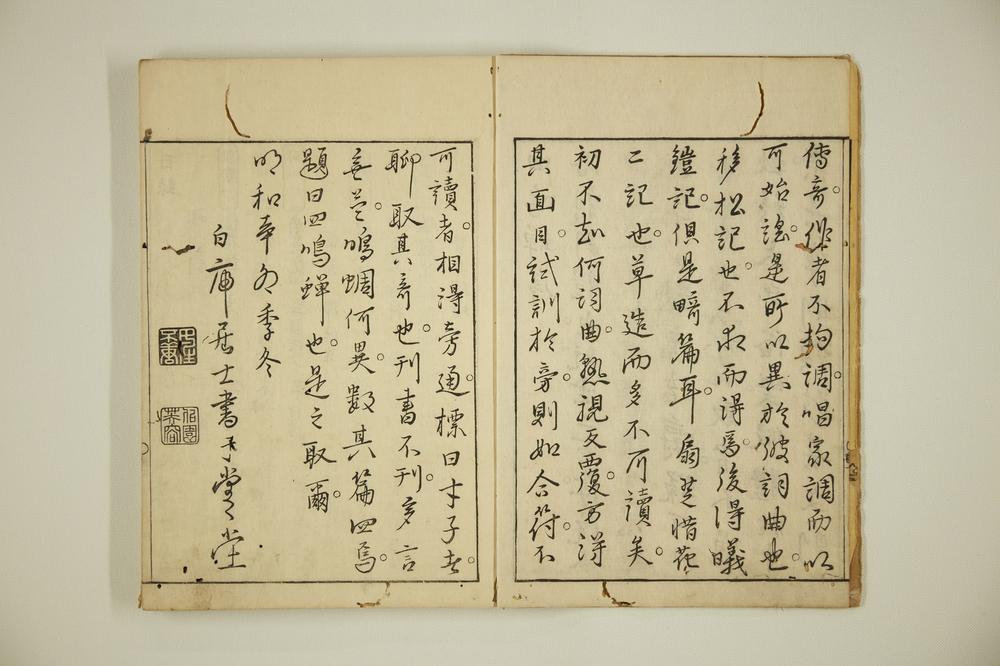 傳奇。作者不拘調。唱家調而以
可始謠。是所以異於彼詞曲也。
移松記也。不求而得焉。後得曦
鎧記。俱是畸篇耳。扇芝惜花
二記也。草造而多不可讀矣。
初不知何詞曲。熟視反覆。方得
其面目。試訓於旁。則如合符。不
可讀者。相得旁通。標曰才子者。
聊取其奇也。刊書不刊。多言
無益。鳴蜩何異。數其篇四焉。
題曰四鳴蟬也。是之取爾。
明和辛卯季冬
白痴居士書于堂堂堂